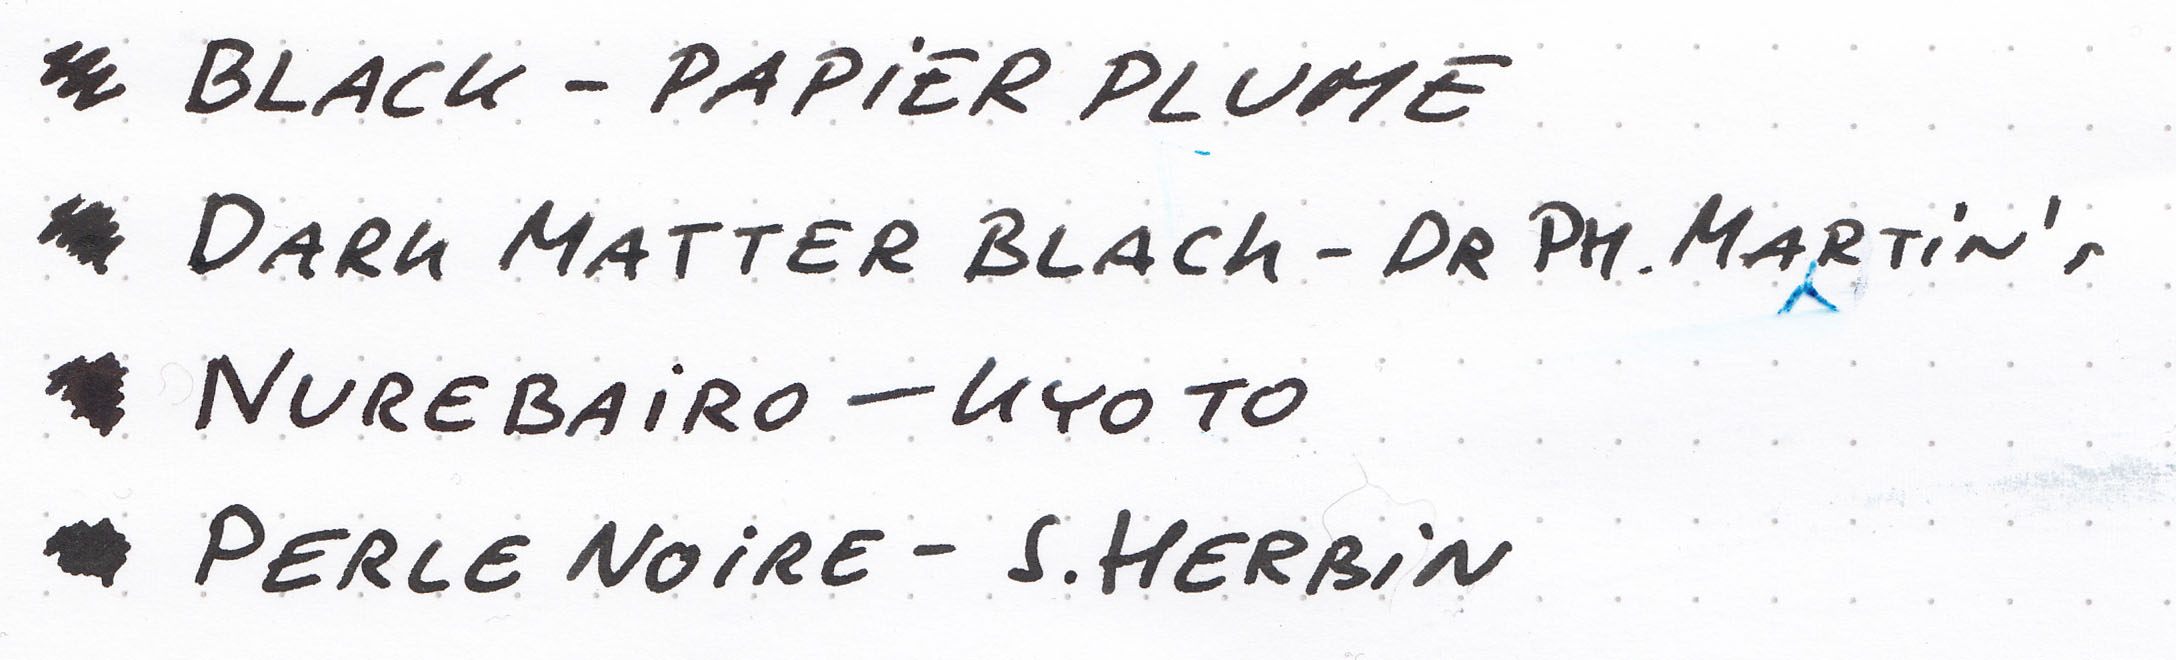 BLACK - PAPiER PLUME
DARK MATTER BLACK - DR PH. MARTiN's
NUREBAiRO - KYOTO
PERLE NOiRE - J.HERBiN